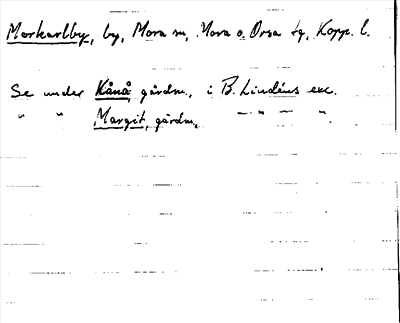 Morkarlby, by, Mora sn, Mora o. Orsa tg, Kopp. l.
Se under Kånå, gårdn., i B. Lindéns exc.
" " Margit, gårdn., — " — " — " .